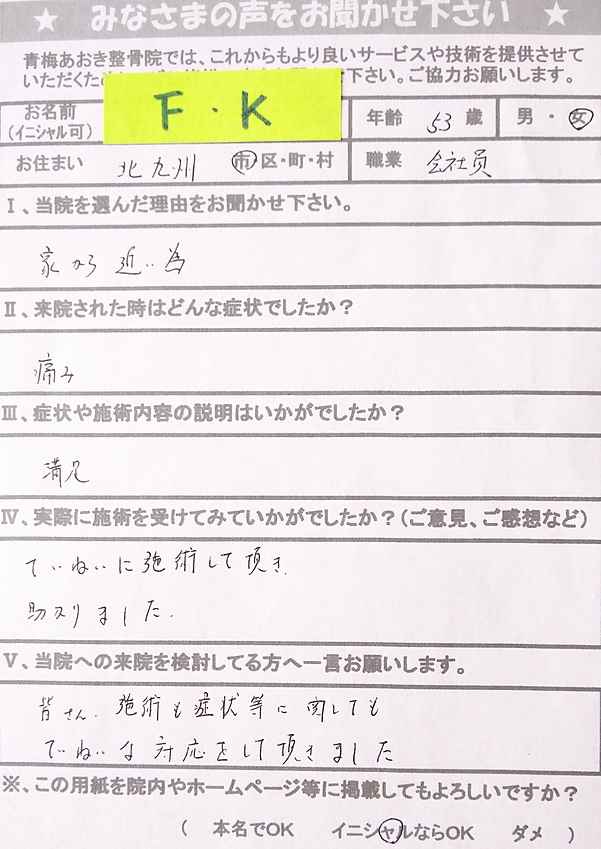 ★ みなさまの声をお聞かせ下さい ★
青梅あおき整骨院では、これからもより良いサービスや技術を提供させて
いただくため 下さい。ご協力お願いします。
お名前 F・K 年齢 53 歳 男・女
(イニシャル可)
お住まい 北九州 市・区・町・村 職業 会社員
Ⅰ、当院を選んだ理由をお聞かせ下さい。
家から近い為
Ⅱ、来院された時はどんな症状でしたか？
痛み
Ⅲ、症状や施術内容の説明はいかがでしたか？
満足
Ⅳ、実際に施術を受けてみていかがでしたか？(ご意見、ご感想など)
ていねいに施術して頂き
助かりました.
Ⅴ、当院への来院を検討してる方へ一言お願いします。
皆さん、施術も症状等に関しても
ていねいな対応をして頂きました
※、この用紙を院内やホームページ等に掲載してもよろしいですか？
( 本名でOK イニシャルならOK ダメ )